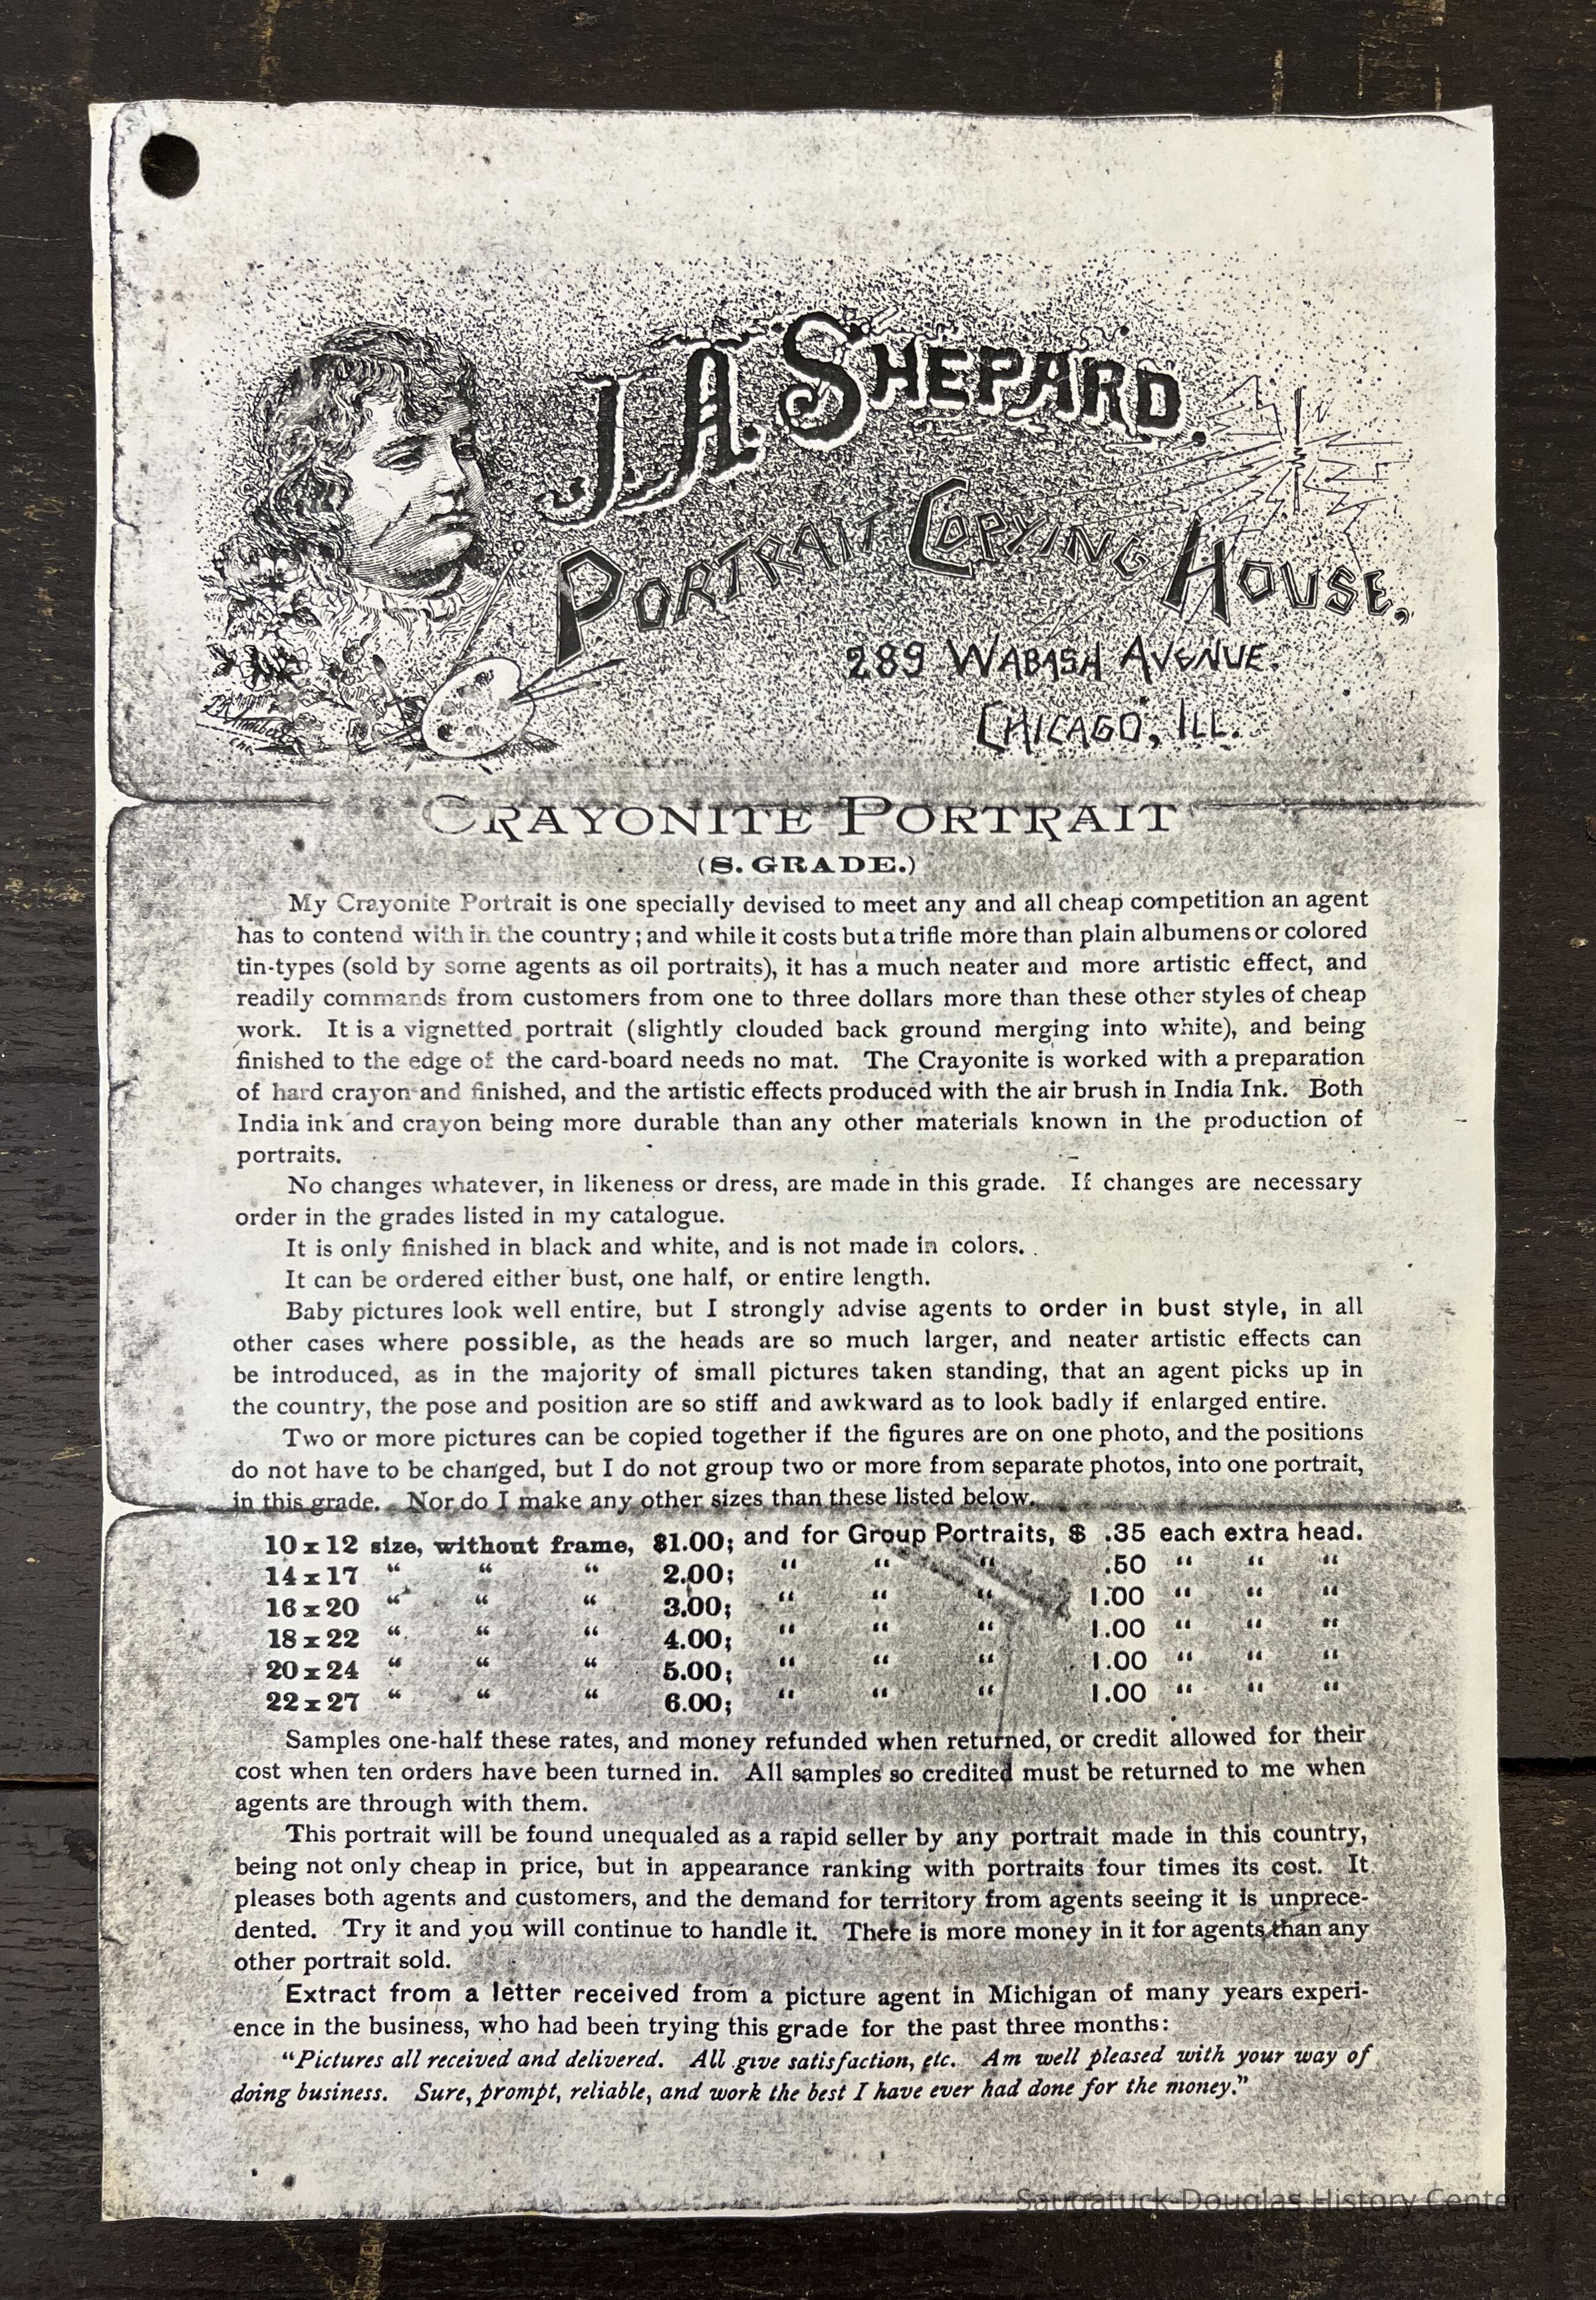 J. A. SHEPARD.
PORTRAIT COPYING HOUSE,
289 WABASH AVENUE.
CHICAGO, ILL.
CRAYONITE PORTRAIT
(S. GRADE.)
My Crayonite Portrait is one specially devised to meet any and all cheap competition an agent
has to contend with in the country; and while it costs but a trifle more than plain albumens or colored
tin-types (sold by some agents as oil portraits), it has a much neater and more artistic effect, and
readily commands from customers from one to three dollars more than these other styles of cheap
work. It is a vignetted portrait (slightly clouded back ground merging into white), and being
finished to the edge of the card-board needs no mat. The Crayonite is worked with a preparation
of hard crayon and finished, and the artistic effects produced with the air brush in India Ink. Both
India ink and crayon being more durable than any other materials known in the production of
portraits.
No changes whatever, in likeness or dress, are made in this grade. If changes are necessary
order in the grades listed in my catalogue.
It is only finished in black and white, and is not made in colors.
It can be ordered either bust, one half, or entire length.
Baby pictures look well entire, but I strongly advise agents to order in bust style, in all
other cases where possible, as the heads are so much larger, and neater artistic effects can
be introduced, as in the majority of small pictures taken standing, that an agent picks up in
the country, the pose and position are so stiff and awkward as to look badly if enlarged entire.
Two or more pictures can be copied together if the figures are on one photo, and the positions
do not have to be changed, but I do not group two or more from separate photos, into one portrait,
in this grade. Nor do I make any other sizes than these listed below.
10 x 12 size, without frame, $1.00; and for Group Portraits, $ .35 each extra head.
14 x 17 “ “ “ 2.00; “ “ “ .50 “ “ “
16 x 20 “ “ “ 3.00; “ “ “ 1.00 “ “ “
18 x 22 “ “ “ 4.00; “ “ “ 1.00 “ “ “
20 x 24 “ “ “ 5.00; “ “ “ 1.00 “ “ “
22 x 27 “ “ “ 6.00; “ “ “ 1.00 “ “ “
Samples one-half these rates, and money refunded when returned, or credit allowed for their
cost when ten orders have been turned in. All samples so credited must be returned to me when
agents are through with them.
This portrait will be found unequaled as a rapid seller by any portrait made in this country,
being not only cheap in price, but in appearance ranking with portraits four times its cost. It
pleases both agents and customers, and the demand for territory from agents seeing it is unprece-
dented. Try it and you will continue to handle it. There is more money in it for agents than any
other portrait sold.
Extract from a letter received from a picture agent in Michigan of many years experi-
ence in the business, who had been trying this grade for the past three months:
“Pictures all received and delivered. All give satisfaction, etc. Am well pleased with your way of
doing business. Sure, prompt, reliable, and work the best I have ever had done for the money.”
Saugatuck-Douglas History Center